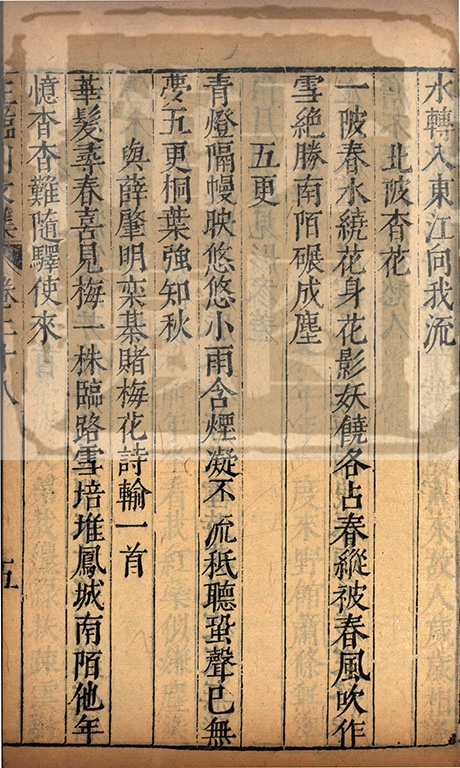 水轉入東江向我流
北陂杏花
一陂春水繞花身花影妖饒各占春縱被春風吹作
雪絶勝南陌碾成塵
五更
青燈隔幔映悠悠小雨含煙凝不流秪聽蛩聲已無
夢五更桐葉強知秋
與薛肇明奕棊賭梅花詩輸一首
華髮尋春喜見梅一株臨路雪培堆鳳城南陌他年
憶杳杳難隨驛使來
五